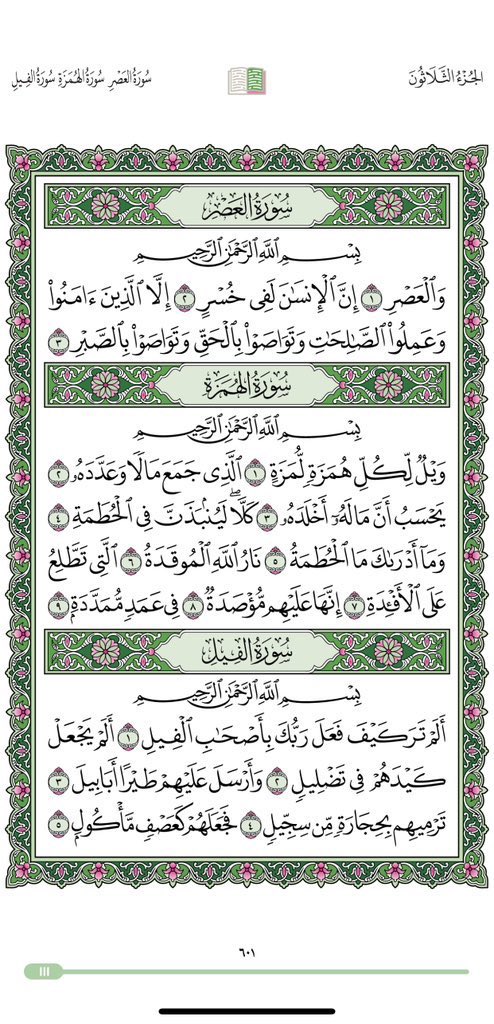 الجُزْءُ الثَّلَاثُونَ
سُورَةُ العَصْرِ سُورَةُ الهُمَزَةِ سُورَةُ الفِيلِ
سُورَةُ العَصْرِ
بِسْمِ ٱللَّهِ ٱلرَّحْمَٰنِ ٱلرَّحِيمِ
وَٱلْعَصْرِ ١ إِنَّ ٱلْإِنسَٰنَ لَفِى خُسْرٍ ٢ إِلَّا ٱلَّذِينَ ءَامَنُوا۟
وَعَمِلُوا۟ ٱلصَّٰلِحَٰتِ وَتَوَاصَوْا۟ بِٱلْحَقِّ وَتَوَاصَوْا۟ بِٱلصَّبْرِ ٣
سُورَةُ الهُمَزَةِ
بِسْمِ ٱللَّهِ ٱلرَّحْمَٰنِ ٱلرَّحِيمِ
وَيْلٌ لِّكُلِّ هُمَزَةٍ لُّمَزَةٍ ١ ٱلَّذِى جَمَعَ مَالًا وَعَدَّدَهُۥ ٢
يَحْسَبُ أَنَّ مَالَهُۥٓ أَخْلَدَهُۥ ٣ كَلَّا ۖ لَيُنۢبَذَنَّ فِى ٱلْحُطَمَةِ ٤
وَمَآ أَدْرَىٰكَ مَا ٱلْحُطَمَةُ ٥ نَارُ ٱللَّهِ ٱلْمُوقَدَةُ ٦ ٱلَّتِى تَطَّلِعُ
عَلَى ٱلْأَفْـِٔدَةِ ٧ إِنَّهَا عَلَيْهِم مُّؤْصَدَةٌ ٨ فِى عَمَدٍ مُّمَدَّدَةٍۭ ٩
سُورَةُ الفِيلِ
بِسْمِ ٱللَّهِ ٱلرَّحْمَٰنِ ٱلرَّحِيمِ
أَلَمْ تَرَ كَيْفَ فَعَلَ رَبُّكَ بِأَصْحَٰبِ ٱلْفِيلِ ١ أَلَمْ يَجْعَلْ
كَيْدَهُمْ فِى تَضْلِيلٍ ٢ وَأَرْسَلَ عَلَيْهِمْ طَيْرًا أَبَابِيلَ ٣
تَرْمِيهِم بِحِجَارَةٍ مِّن سِجِّيلٍ ٤ فَجَعَلَهُمْ كَعَصْفٍ مَّأْكُولٍۭ ٥
٦٠١